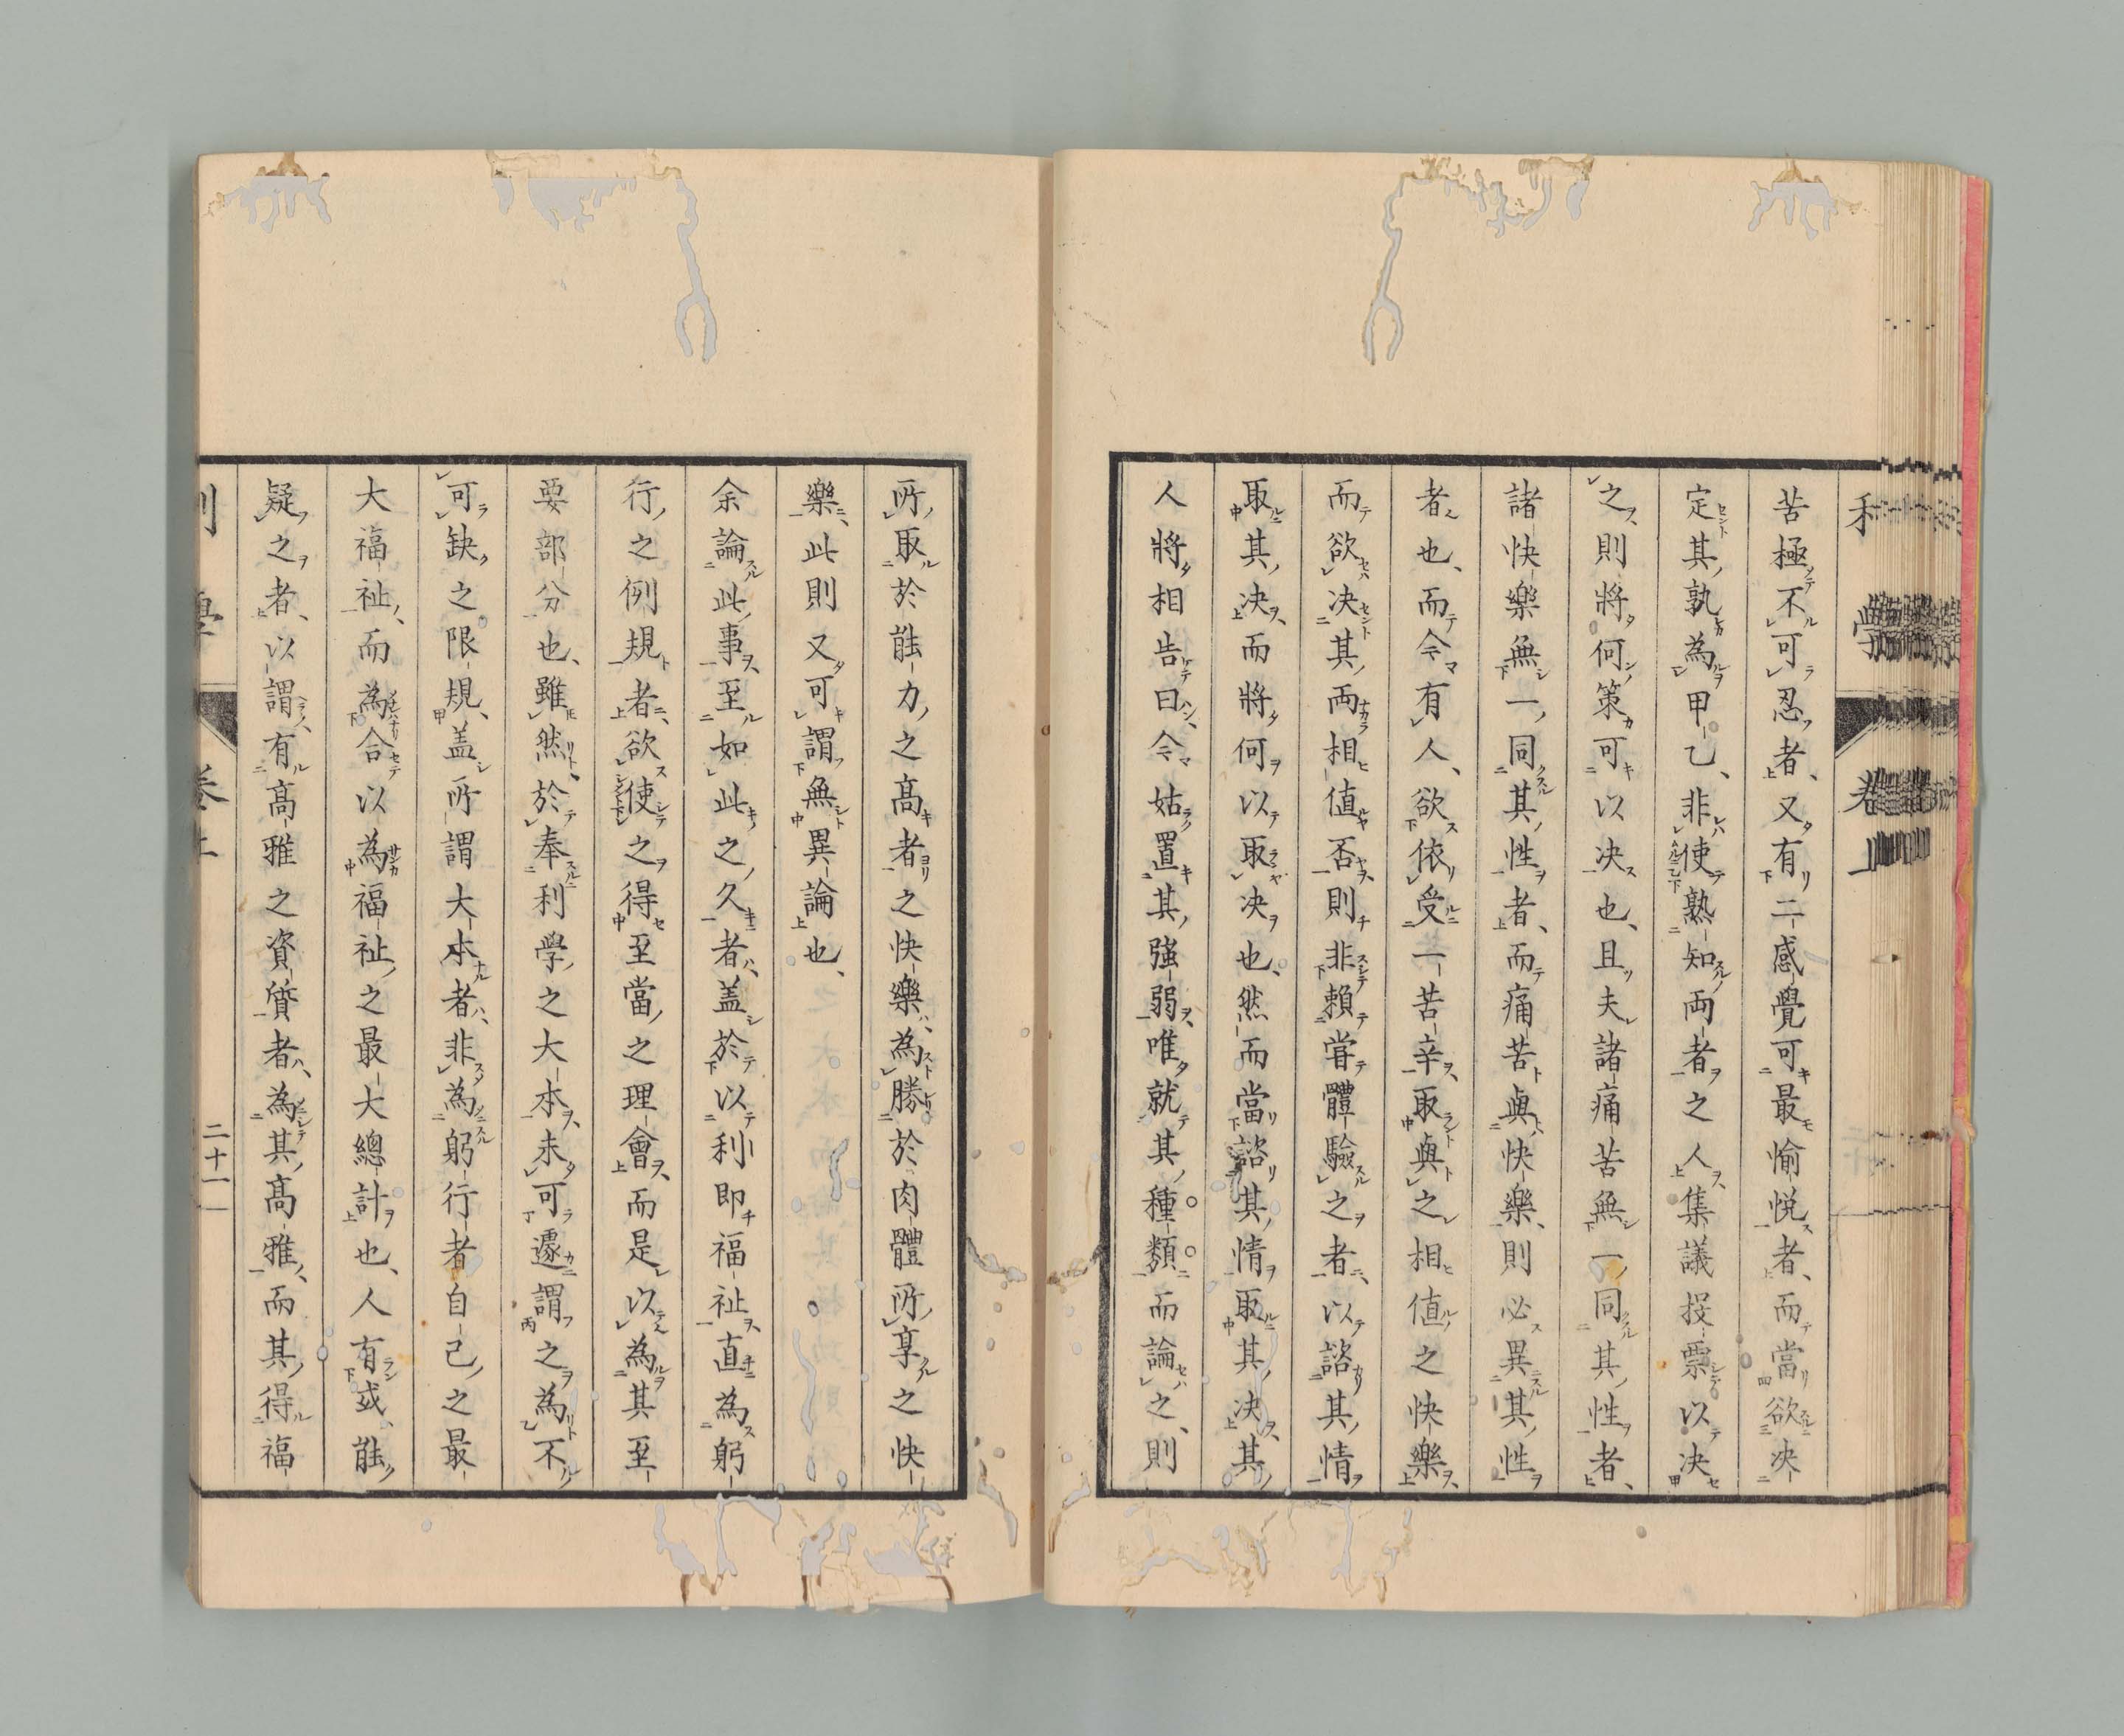 苦極不可忍者、又有二感覺可最愉悦者、而當欲决
定其孰為甲乙、非使熟知両者之人集議投票以决
之、則將何策可以决也、且夫諸痛苦無一同其性者、
諸快樂無一同其性者、而痛苦與快樂、則必異其性
者也、而今有人、欲依受一苦辛、取與之相値之快樂、
而欲决其両相値否、則非賴甞體驗之者、以諮其情
取其决、而將何以取决也、然而當諮其情取其决、其
人將相告曰、今姑置其強弱、唯就其種類而論之、則
所取於能力之高者之快樂、為勝於肉體所享之快
樂、此則又可謂無異論也、
余論此事、至如此之久者、盖於以利即福祉、直為躬
行之例規者、欲使之得至當之理會、而是以為其至
要部分也、雖然、於奉利學之大本、未可遽謂之為不
可缺之限規、盖所謂大本者、非為躬行者自己之最
大福祉、而為合以為福祉之最大總計也、人有或、能
疑之者、以謂有高雅之資質者、為其高雅、而其得福
利學 卷上
二十一